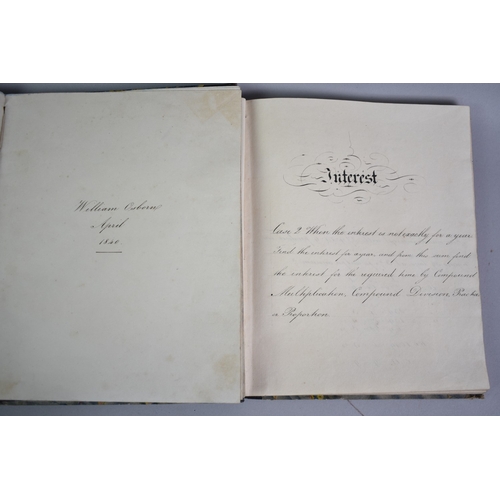 William Osborn
April
1840
Interest
Case 2 When the interest is not exactly for a year
Find the interest for a year, and from this sum find
the interest for the required time by Compound
Multiplication, Compound Division, Practice
or Proportion.